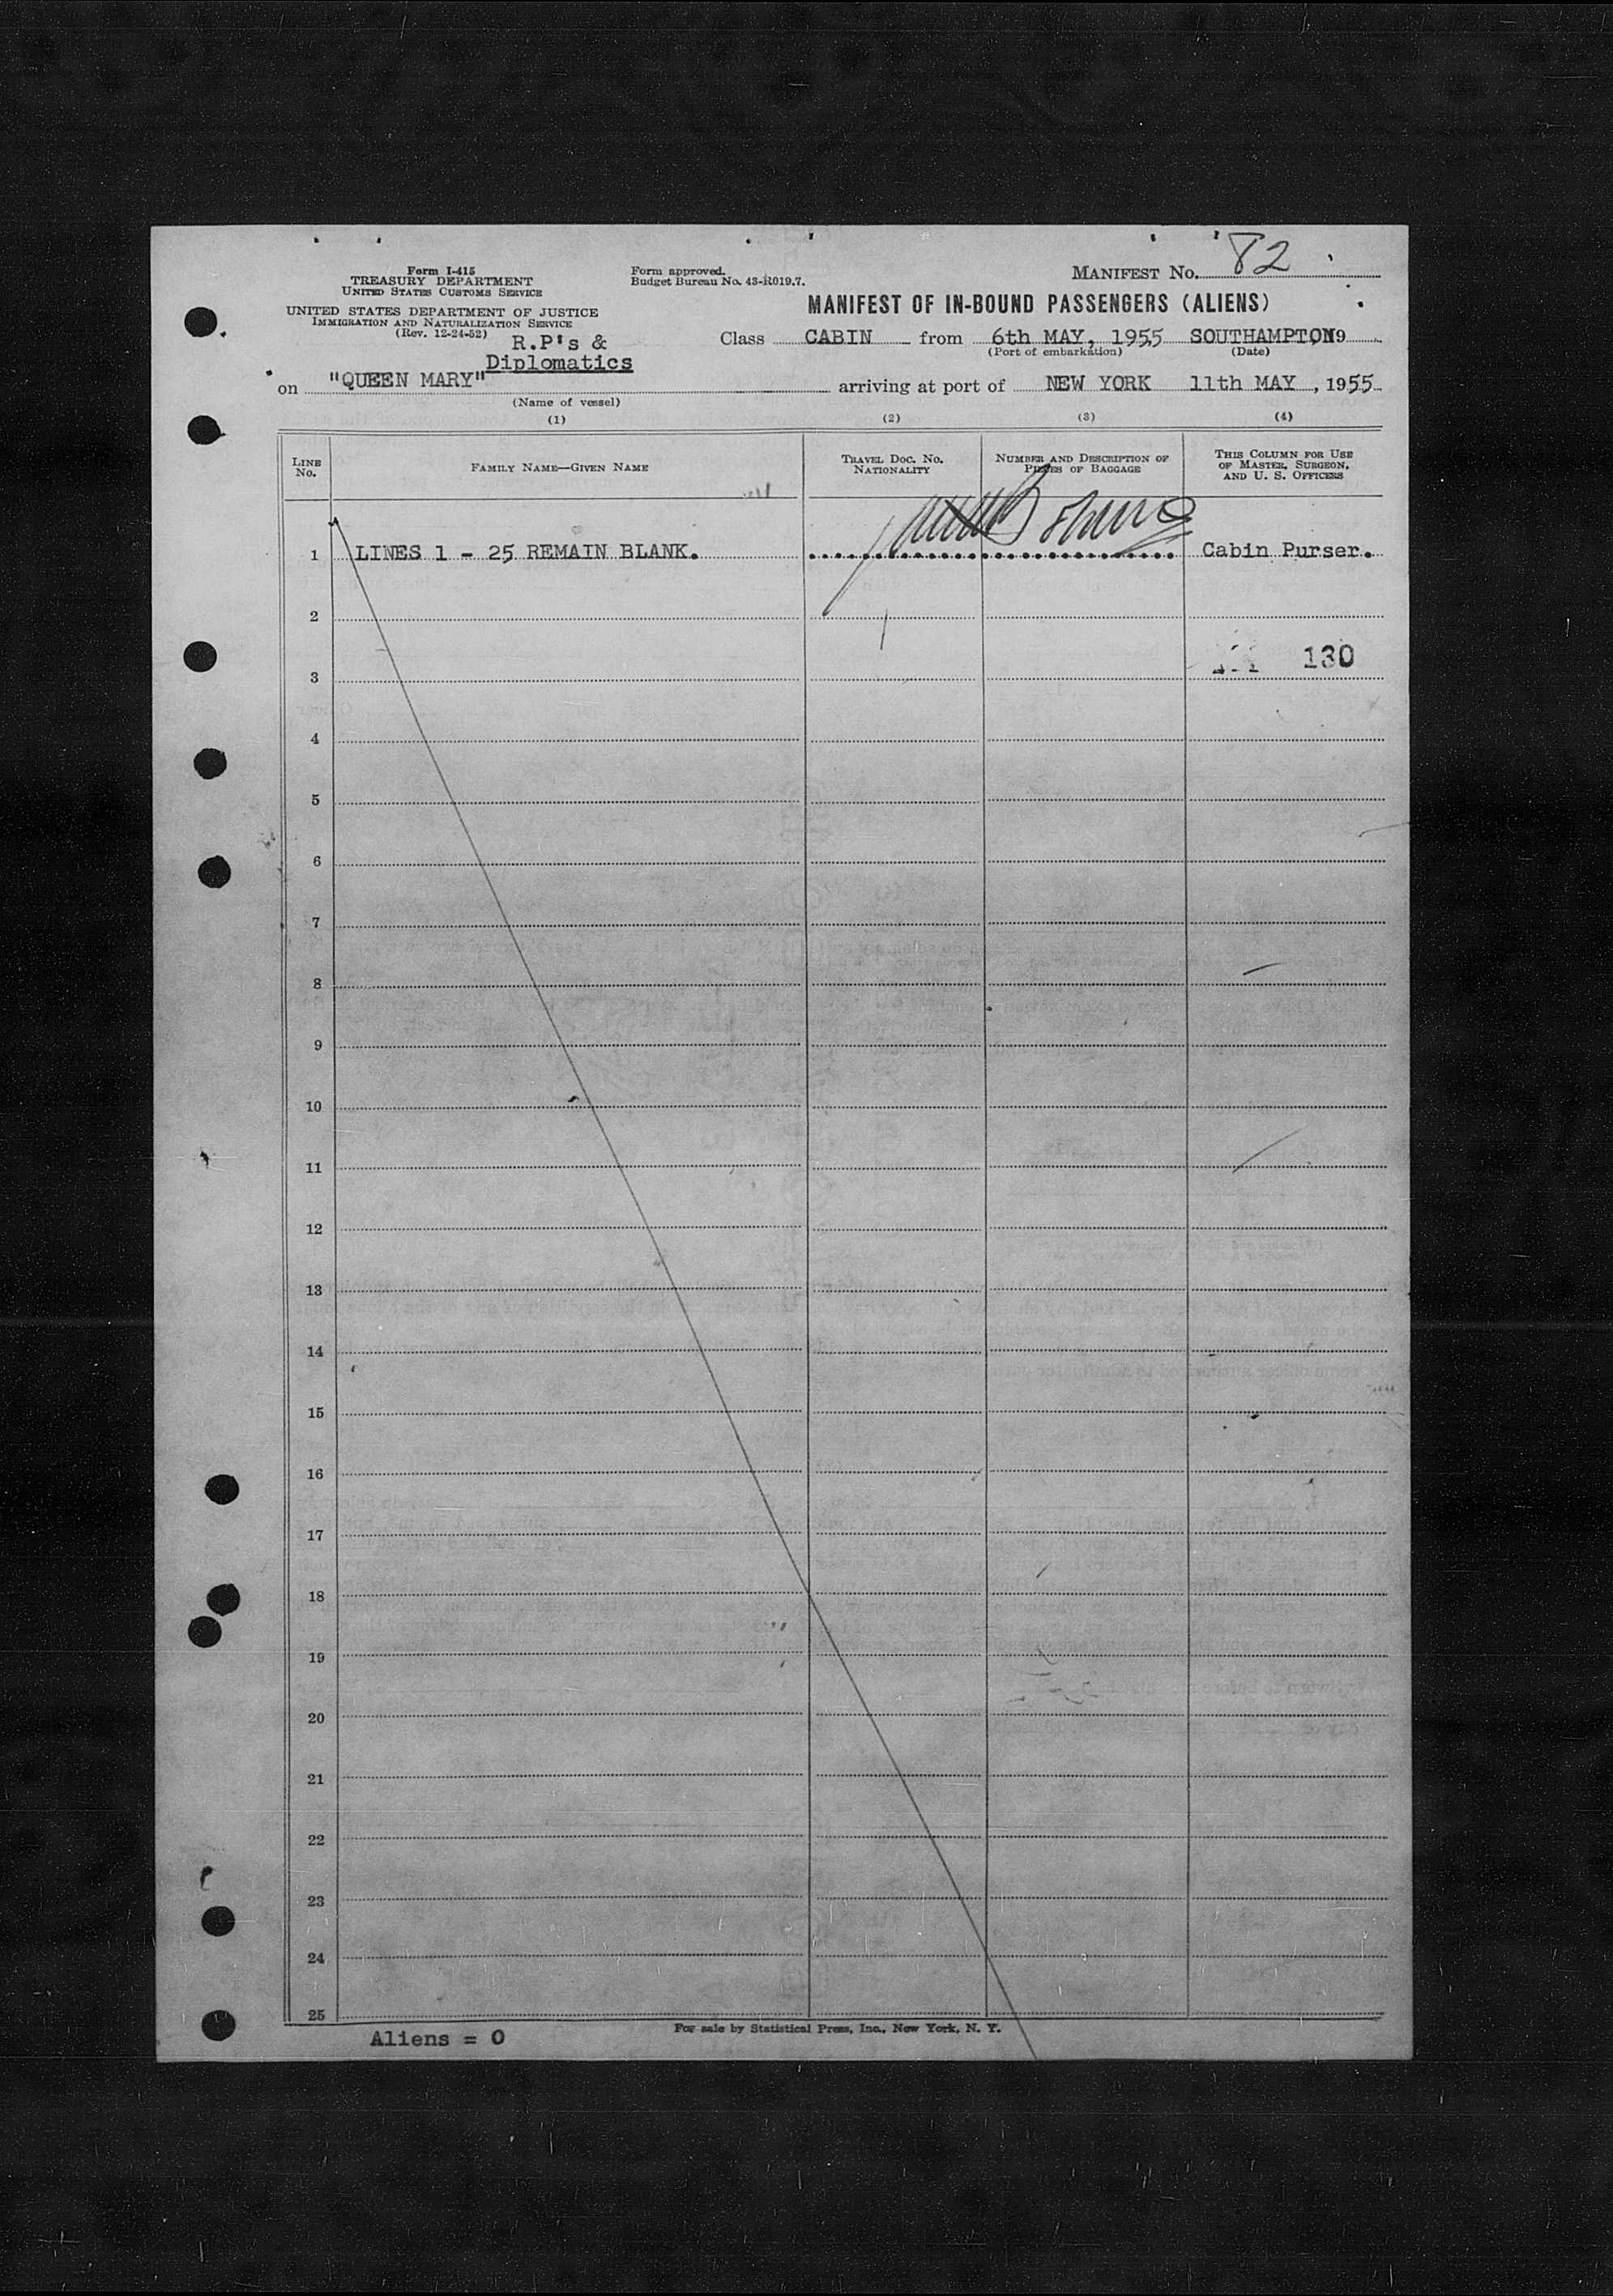 82
Form I-415
TREASURY DEPARTMENT
UNITED STATES CUSTOMS SERVICE
Form approved.
Budget Bureau No. 43-R019.7.
MANIFEST No.
UNITED STATES DEPARTMENT OF JUSTICE
IMMIGRATION AND NATURALIZATION SERVICE
(Rev. 12-24-52)
MANIFEST OF IN-BOUND PASSENGERS (ALIENS)
R.P's &
Diplomatics
Class CABIN from 6th MAY, 1955 SOUTHAMPTON 19
(Port of embarkation) (Date)
on "QUEEN MARY" arriving at port of NEW YORK 11th MAY, 1955
(Name of vessel)
(1) (2) (3) (4)
LINE No.
FAMILY NAME—GIVEN NAME
TRAVEL DOC. No. NATIONALITY
NUMBER AND DESCRIPTION OF PIECES OF BAGGAGE
THIS COLUMN FOR USE OF MASTER, SURGEON, AND U. S. OFFICERS
1 LINES 1 - 25 REMAIN BLANK. Cabin Purser.
2
130
3
4
5
6
7
8
9
10
11
12
13
14
15
16
17
18
19
20
21
22
23
24
25
For sale by Statistical Press, Inc., New York, N. Y.
Aliens = 0